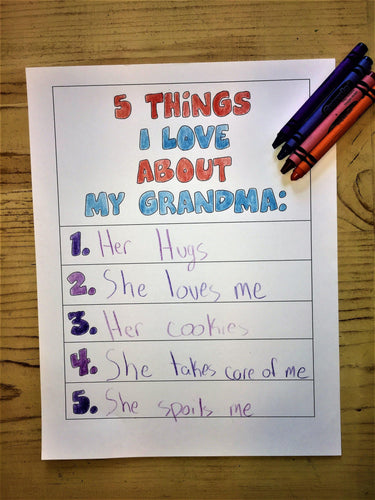 5 THiNGS
I LOVE
ABOUT
MY GRANDMA:
1. Her Hugs
2. She loves me
3. Her cookies
4. She takes care of me
5. She spoils me